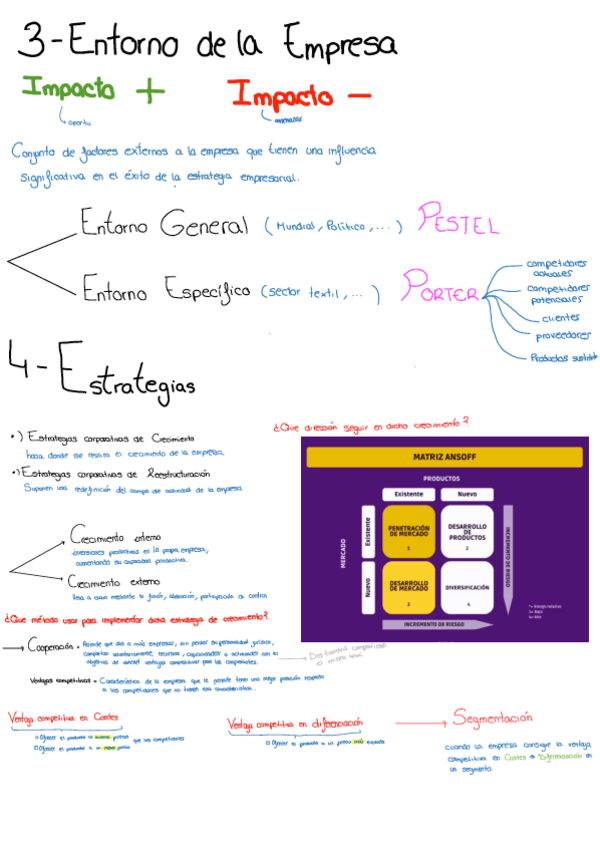 3-Entorno de la Empresa
Impacto + Impacto -
Conjunto de factores externos a la empresa que tienen una influencia
significativa en el éxito de la estrategia empresarial.
Entorno General (Mundial, Político, ...) PESTEL
Entorno Específico (sector textil, ... ) PORTER
competidores
actuales
competidores
potenciales
clientes
proveedores
Productos
4-Estrategias
•) Estrategias corporativas de Crecimiento
hacia donde se realiza el crecimiento de la empresa.
•) Estrategias corporativas de Reestructuración
Suponen una redefinición del campo de actividad de la empresa
Crecimiento interno
inversiones productivas en la propia empresa,
aumentando su capacidad productiva.
Crecimiento externo
lleva a cabo mediante la fusión, participación o control
¿Qué dirección seguir en dicho crecimiento?
MATRIZ ANSOFF
PRODUCTOS
Existente Nuevo
MERCADO
Existente
PENETRACIÓN
DE MERCADO
1
DESARROLLO
DE
PRODUCTOS
2
Nuevo
DESARROLLO
DE MERCADO
3
DIVERSIFICACIÓN
4
INCREMENTO DE RIESGO
INCREMENTO DE RIESGO
¿Qué método usar para implementar dicha estrategia de crecimiento?
Cooperación = Permite que dos o más empresas, sin perder su personalidad jurídica,
compartan recursos, capacidades o actividades con el
objetivo de obtener ventajas competitivas para los cooperantes.
Dos tiendas
el mismo local
Ventajas competitivas = Característica de la empresa que le permite tener una mejor posición respecto
a los competidores que no tienen esa característica.
Ventaja competitiva en Costes
Ofrecer el producto a precio que los competidores
Ofrecer el producto a un precio
Ventaja competitiva en diferenciación
Ofrecer el producto a un precio más elevado
Segmentación
cuando la empresa consigue la ventaja
competitiva en Costes o Diferenciación en
un segmento.